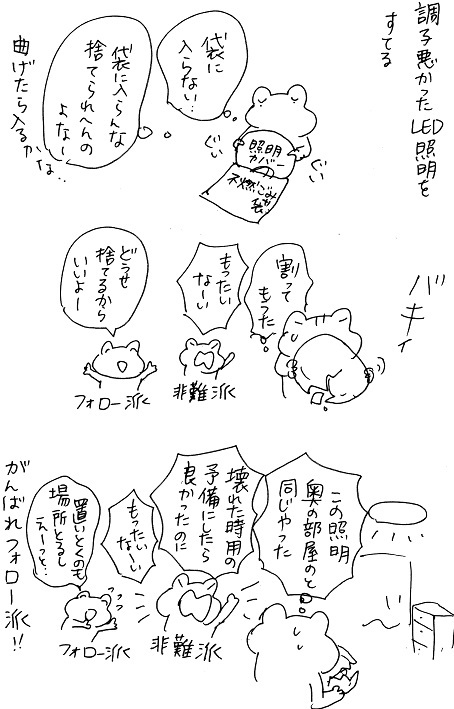 調子悪かったLED照明を
すてる
袋に
入らない…
袋に入らんな
捨てられへんの
よなー
曲げたら入るかな…
照明
カバー
不燃ごみ
袋
ぐい
ぐい
バキィ
割って
もった
もったい
なーい
どうせ
捨てるから
いいよー
非難派
フォロー派
この照明
奥の部屋のと
同じやった
壊れた時用の
予備にしたら
良かったのに
もったい
なーい
置いとくのも
場所とるし
えーっと…
非難派
フォロー派
がんばれフォロー派!!